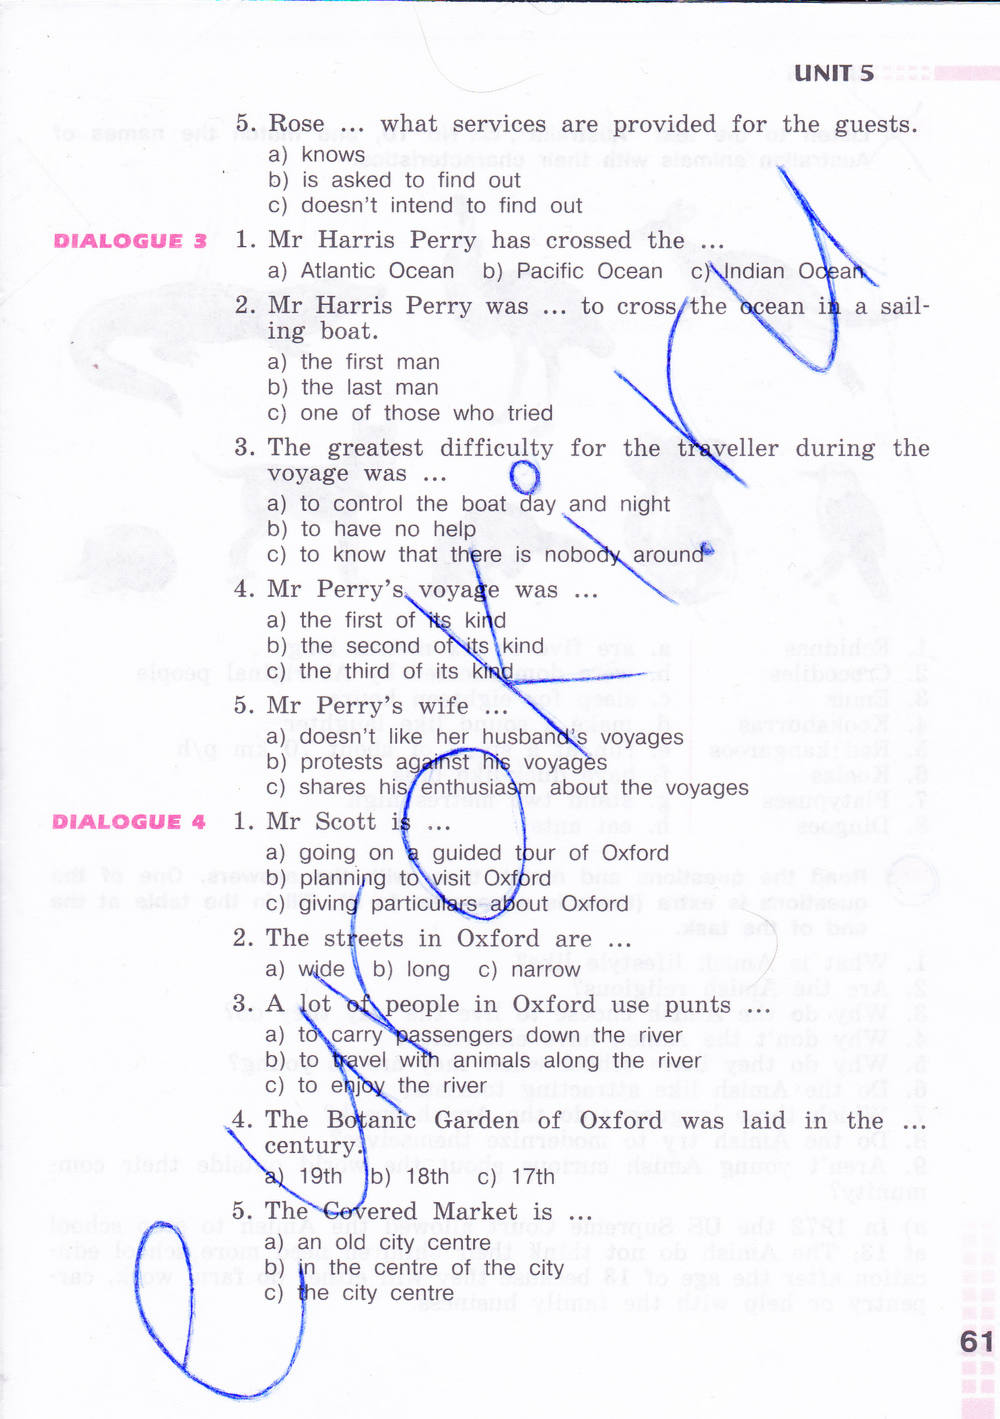 UNIT 5
5. Rose ... what services are provided for the guests.
a) knows
b) is asked to find out
c) doesn't intend to find out
DIALOGUE 3 1. Mr Harris Perry has crossed the ...
a) Atlantic Ocean b) Pacific Ocean c) Indian Ocean
2. Mr Harris Perry was ... to cross the ocean in a sail-
ing boat.
a) the first man
b) the last man
c) one of those who tried
3. The greatest difficulty for the traveller during the
voyage was ...
a) to control the boat day and night
b) to have no help
c) to know that there is nobody around
4. Mr Perry's voyage was ...
a) the first of its kind
b) the second of its kind
c) the third of its kind
5. Mr Perry's wife ...
a) doesn't like her husband's voyages
b) protests against his voyages
c) shares his enthusiasm about the voyages
DIALOGUE 4 1. Mr Scott is ...
a) going on a guided tour of Oxford
b) planning to visit Oxford
c) giving particulars about Oxford
2. The streets in Oxford are ...
a) wide b) long c) narrow
3. A lot of people in Oxford use punts ...
a) to carry passengers down the river
b) to travel with animals along the river
c) to enjoy the river
4. The Botanic Garden of Oxford was laid in the ...
century.
a) 19th b) 18th c) 17th
5. The Covered Market is ...
a) an old city centre
b) in the centre of the city
c) the city centre
61